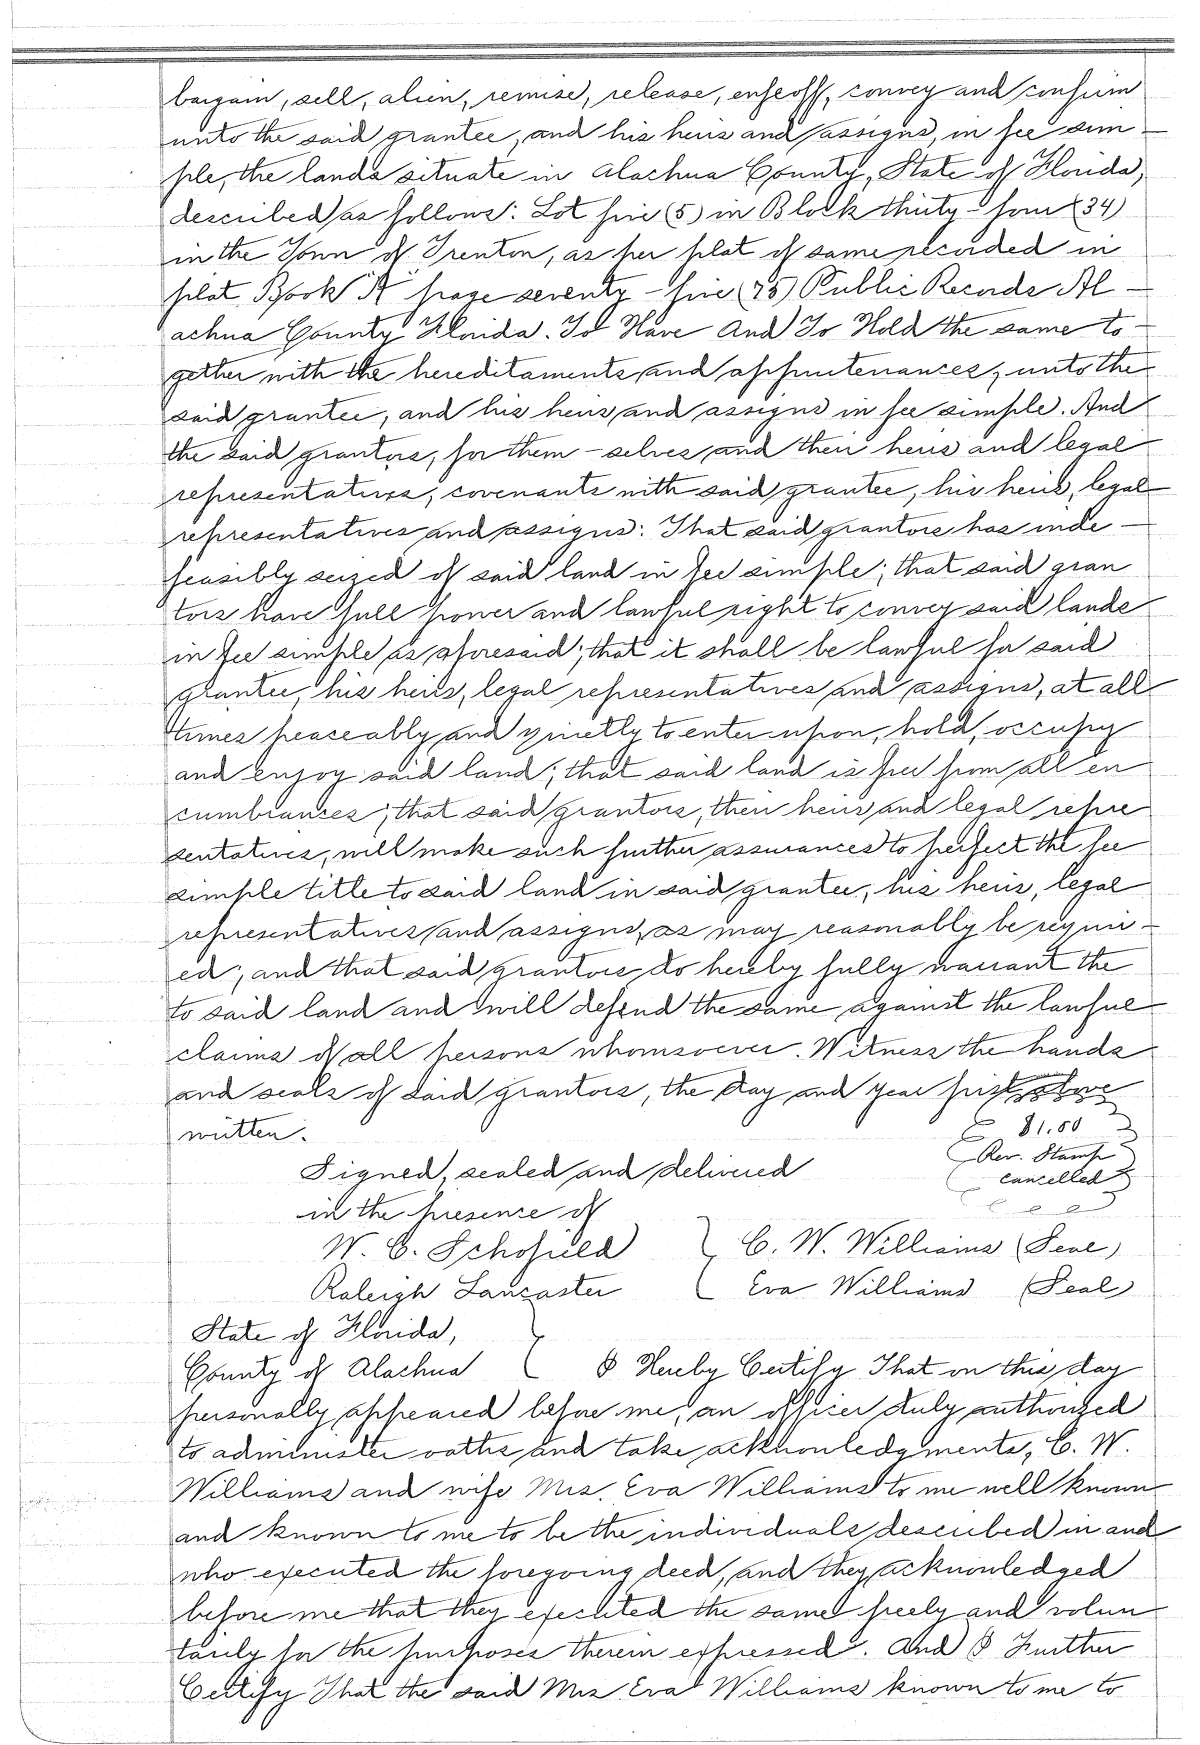 bargain, sell, alien, remise, release, enfeoff, convey and confirm
unto the said grantee, and his heirs and assigns, in fee sim-
ple, the lands situate in Alachua County, State of Florida,
described as follows: Lot five (5) in Block thirty-four (34)
in the Town of Trenton, as per plat of same recorded in
plat Book "A" page seventy-five (75) Public Records Al-
achua County Florida. To Have And To Hold the same to-
gether with the hereditaments and appurtenances, unto the
said grantee, and his heirs and assigns in fee simple. And
the said grantors, for them-selves and their heirs and legal
representatives, covenants with said grantee, his heirs, legal
representatives and assigns: That said grantors has inde-
feasibly seized of said land in fee simple; that said gran
tors have full power and lawful right to convey said lands
in fee simple as aforesaid; that it shall be lawful for said
grantee, his heirs, legal representatives and assigns, at all
times peaceably and quietly to enter upon, hold, occupy
and enjoy said land; that said land is free from all en
cumbrances; that said grantors, their heirs and legal repre
sentatives, will make such further assurances to perfect the fee
simple title to said land in said grantee, his heirs, legal
representatives and assigns, as may reasonably be requir-
ed; and that said grantors do hereby fully warrant the
to said land and will defend the same against the lawful
claims of all persons whomsoever. Witness the hands
and seals of said grantors, the day and year first above
written.
$1.50
Rev. Stamp
cancelled
Signed, sealed and delivered
in the presence of
W. C. Schofield } C. W. Williams (Seal)
Raleigh Lancaster { Eva Williams (Seal)
State of Florida, }
County of Alachua { I Hereby Certify That on this day
personally appeared before me, an officer duly authorized
to administer oaths and take acknowledgments, C. W.
Williams and wife Mrs. Eva Williams to me well known
and known to me to be the individuals described in and
who executed the foregoing deed, and they acknowledged
before me that they executed the same freely and volun
tarily for the purposes therein expressed. And I Further
Certify That the said Mrs Eva Williams known to me to